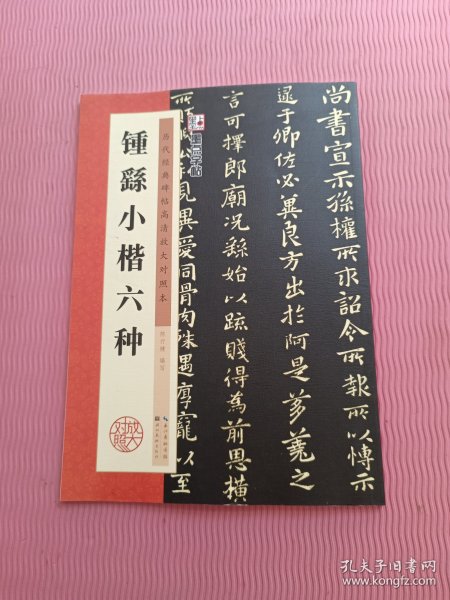 锺繇小楷六种
历代经典碑帖高清放大对照本
编写
放大
对照
墨点字帖
尚書宣示孫權所求詔令所報所以博示
逮于卿佐必冀良方出於阿是芻蕘之
言可擇郎廟況繇始以疏賤得為前恩橫
所見異愛同骨肉殊遇厚寵以至
孔夫子旧书网
www.kongfz.com